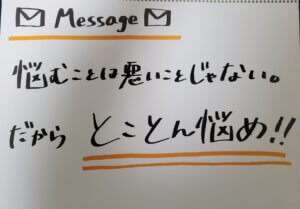 ✉ Message ✉
悩むことは悪いことじゃない。
だから とことん悩め!!